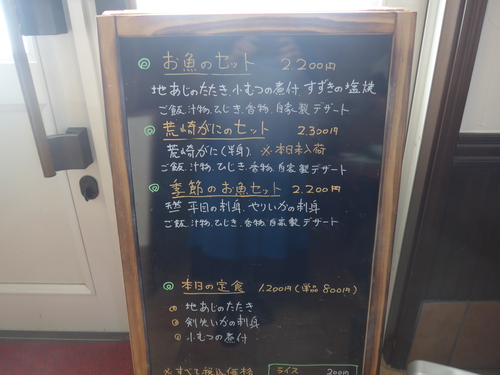 ◎ お魚のセット 2.200円
地あじのたたき、小むつの煮付 すずきの塩焼
ご飯、汁物、ひじき、香物、自家製デザート
◎ 荒崎がにのセット 2.300円
荒崎がに(半身)、※本日未入荷
ご飯、汁物、ひじき、香物、自家製デザート
◎ 季節のお魚セット 2.200円
天然 平目の刺身、やりいかの刺身
ご飯、汁物、ひじき、香物、自家製デザート
◎ 本日の定食 1.200円(単品 800円)
① 地あじのたたき
② 剣先いかの刺身
③ 小むつの煮付
※すべて税込価格
ライス 200円